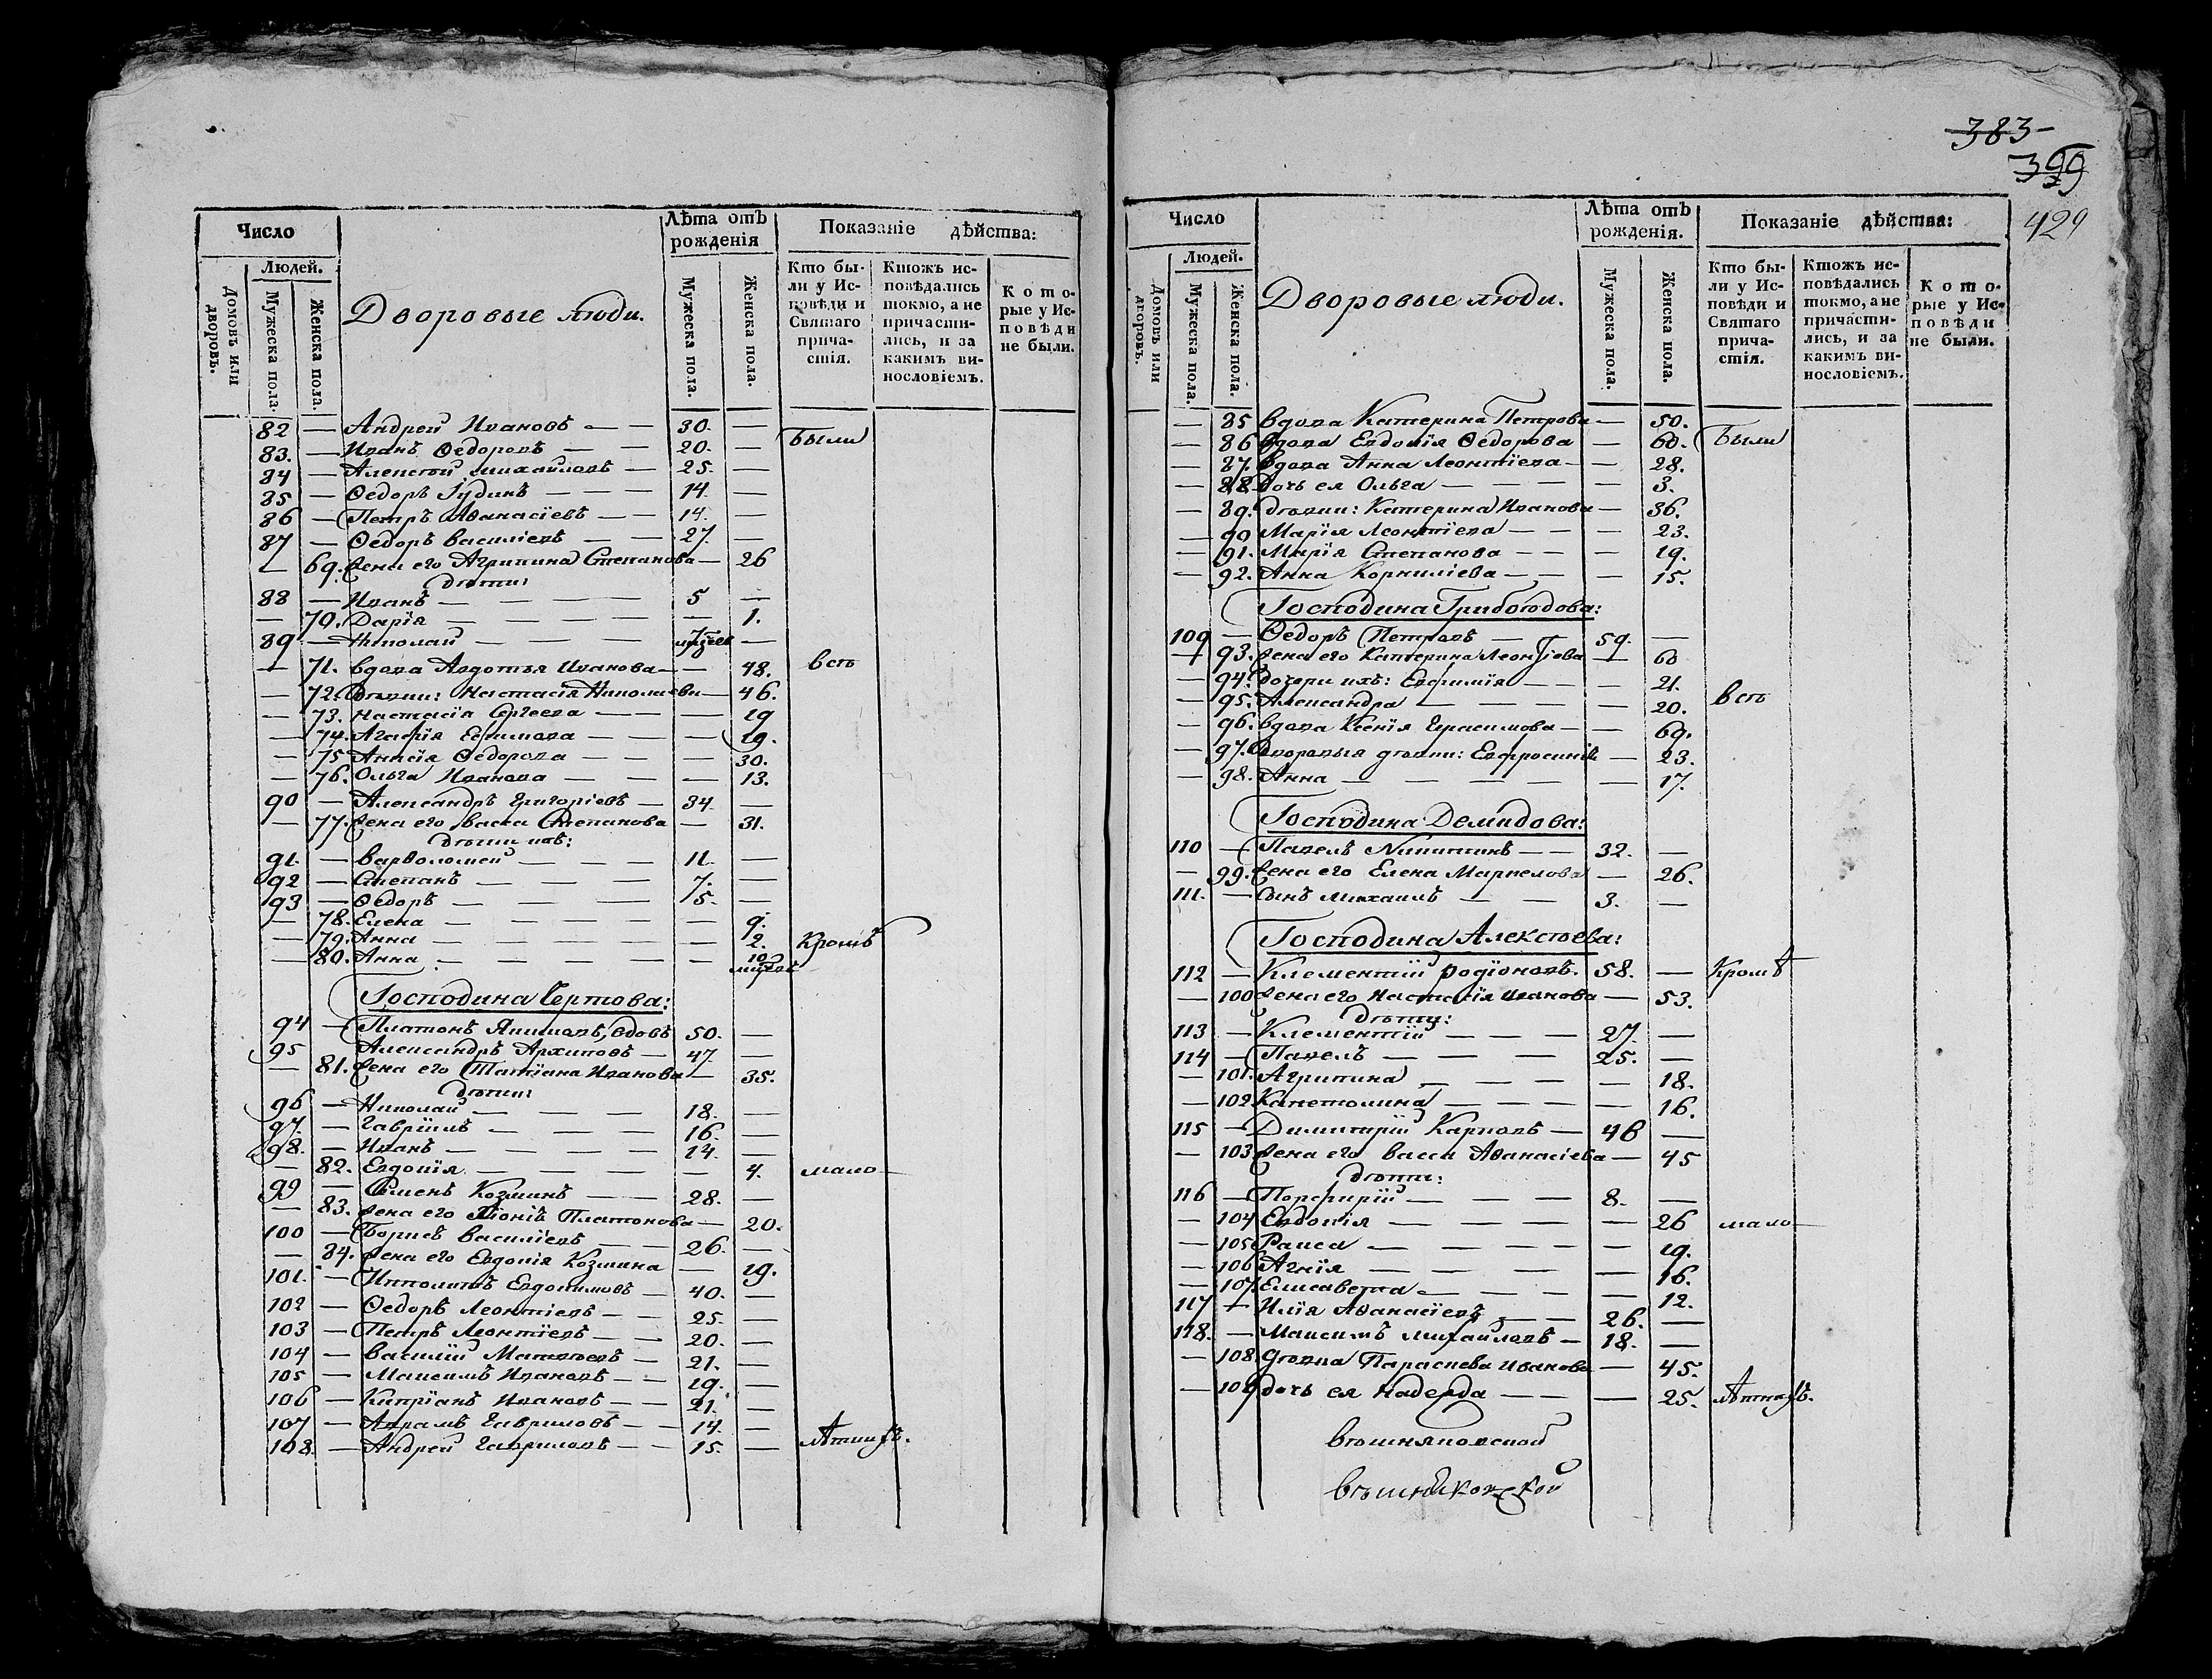 Число
Лѣта отъ рожденія
Показаніе дѣйства:
Людей.
Домовъ или дворовъ.
Мужеска пола.
Женска пола.
Дворовые люди.
Мужеска пола.
Женска пола.
Кто были у Исповѣди и Святаго причастія.
Ктожъ исповѣдались токмо, а не причастились, и за какимъ винословіемъ.
Которые у Исповѣди не были.
82 — Андрей Ивановъ — — 30. — Были
83. — Иванъ Ѳедоровъ — — 20. —
84 — Алексѣй Михайловъ — 25. —
85 — Ѳедоръ Іудинъ — — — 14. —
86 — Петръ Аѳанасіевъ — — 14. —
87 — Ѳедоръ Василіевъ — — 27. —
— 69. Жена его Агрипина Степанова — 26
Дѣти:
88 — Иванъ — — — — 5 —
— 70. Дарія — — — — — 1.
89 — Николай — — — —
— 71. Вдова Авдотья Иванова — — 48. всѣ
— 72. Дѣвки: Настасія Николаева — 46.
— 73. Настасія Сергеева — — — 19
— 74. Агафія Ефимова — — — 19.
— 75 Анисія Ѳедорова — — — 30.
— 76. Ольга Иванова — — — 13.
90 — Александръ Григоріевъ — 34. —
— 77. Жена его Васса Степанова — 31.
Дѣти ихъ:
91. — Варѳоломей — — — 11. —
92 — Степанъ — — — 7. —
93 — Ѳедоръ — — — — 5. —
— 78. Елена — — — — — 9.
— 79. Анна — — — — — 2. Кромѣ
— 80. Анна — — — — — 10
Господина Чертова:
94 — Платонъ Якимовъ, вдовъ 50. —
95 Александръ Архиповъ — 47. —
— 81. Жена его Татіана Иванова — 35.
Дѣти:
96 — Николай — — — 18. —
97. — Гавріилъ — — — 16. —
98. — Иванъ — — — — 14. —
— 82. Евдокія — — — — — 4. мало
99 — Семенъ Козминъ — — 28. —
— 83. Жена его Платонова — 20.
100 — Борисъ Василіевъ — — 26. —
— 84. Жена его Евдокія Козмина — 19.
101. — Ипполитъ Евдокимовъ — 40. —
102 — Ѳедоръ Леонтіевъ — 25. —
103 — Петръ Леонтіевъ — — 20. —
104 — Василій Матвѣевъ — 21. —
105 — Максимъ Ивановъ — — 19. —
106 — Кипріанъ Ивановъ — — 21. —
107 — Авраамъ Гавриловъ — — 14. —
108. — Андрей Гавриловъ — — 15. — лѣтнихъ.
383
399
429
Число
Лѣта отъ рожденія.
Показаніе дѣйства:
Людей.
Домовъ или дворовъ.
Мужеска пола.
Женска пола.
Дворовые люди.
Мужеска пола.
Женска пола.
Кто были у Исповѣди и Святаго причастія.
Ктожъ исповѣдались токмо, а не причастились, и за какимъ винословіемъ.
Которые у Исповѣди не были.
— 85 Вдова Катерина Петрова — 50. Были
— 86 Вдова Евдокія Ѳедорова — 60.
— 87. Вдова Анна Леонтіева — — 28.
— 88. Дочь ея Ольга — — — — 3.
— 89. Дѣвки: Катерина Иванова — 36.
— 90 Марія Леонтіева — — — 23.
— 91. Марія Степанова — — — 19.
— 92. Анна Корниліева — — — 15.
Господина Грибоѣдова:
109 — Ѳедоръ Петровъ — 59. —
— 93. Жена его Катерина Леонтіева — 60
— 94. Дочери ихъ: Евфимія — — — 21. всѣ
— 95. Александра — — — — 20.
— 96. Вдова Ксенія Герасимова — — 69.
— 97. Дворовыя дѣвки: Евфросинія — 23.
— 98. Анна — — — — — 17.
Господина Демидова:
110 — Павелъ Никитинъ — — 32. —
— 99. Жена его Елена Маркелова — 26.
111. — Сынъ Михаилъ — — 3. —
Господина Алексѣева:
112 — Клементій Родіоновъ. 58. — Кромѣ
— 100 Жена его Настасія Иванова — 53.
Дѣти:
113 — Клементій — — — 27. —
114 — Павелъ — — — 25. —
— 101. Агрипина — — — — 18.
— 102 Капетолина — — — — 16.
115 — Димитрій Карповъ — 46 —
— 103 Жена его Васса Аѳанасіева — 45
Дѣти:
116 — Порфирій — — — 8. —
— 104 Евдокія — — — — 26 мало
— 105 Раиса — — — — — 19.
— 106 Агнія — — — — — 16.
— 107. Елисавета — — — — 12.
117 — Илія Аѳанасіевъ — — 26. —
118. — Максимъ Михайловъ — 18. —
— 108. Дѣвка Параскева Иванова — 45.
— 109 Дочь ея Надежда — — — 25. лѣтнихъ.
Вѣшняковской
Вѣшняковской